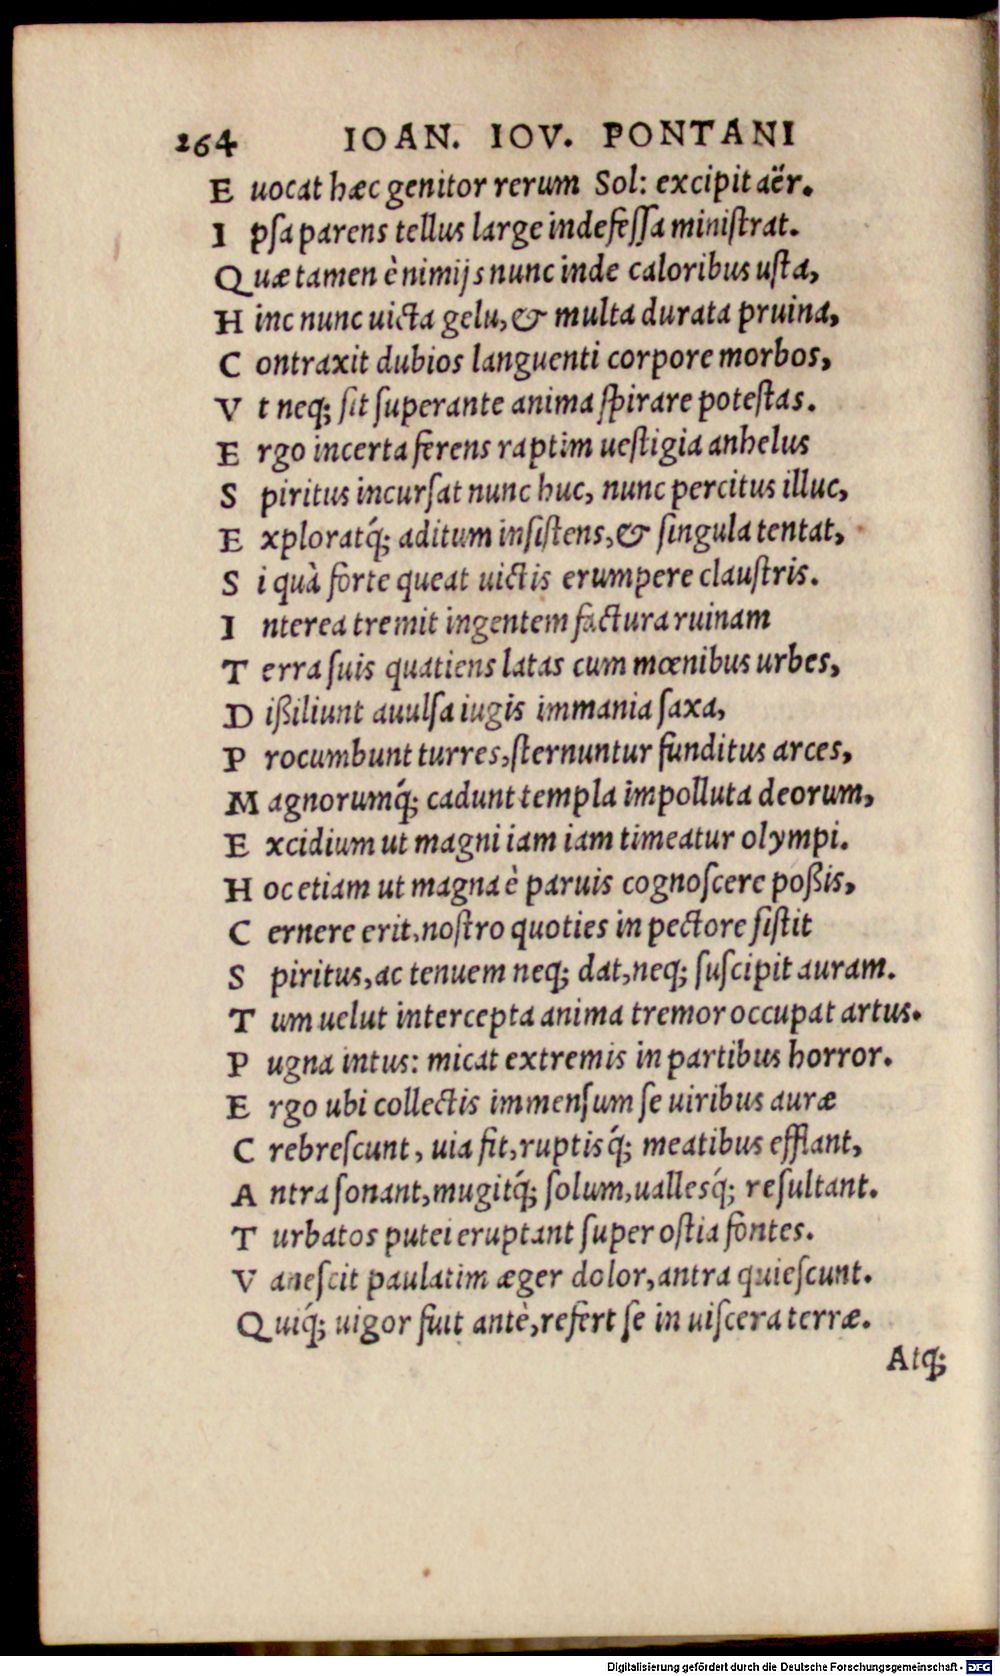 264 IOAN. IOV. PONTANI
E uocat hæc genitor rerum Sol: excipit aër.
I psa parens tellus large indefeſſa miniſtrat.
Quæ tamen è nimijs nunc inde caloribus uſta,
H inc nunc uicta gelu, & multa durata pruina,
C ontraxit dubios languenti corpore morbos,
V t neq; ſit ſuperante anima ſpirare poteſtas.
E rgo incerta ferens raptim ueſtigia anhelus
S piritus incurſat nunc huc, nunc percitus illuc,
E xploratq́; aditum inſiſtens, & ſingula tentat,
S i quà forte queat uictis erumpere clauſtris.
I nterea tremit ingentem factura ruinam
T erra ſuis quatiens latas cum mœnibus urbes,
D ißiliunt auulſa iugis immania ſaxa,
P rocumbunt turres, ſternuntur funditus arces,
M agnorumq́; cadunt templa impolluta deorum,
E xcidium ut magni iam iam timeatur olympi.
H oc etiam ut magna è paruis cognoſcere poßis,
C ernere erit, noſtro quoties in pectore ſiſtit
S piritus, ac tenuem neq; dat, neq; ſuſcipit auram.
T um uelut intercepta anima tremor occupat artus.
P ugna intus: micat extremis in partibus horror.
E rgo ubi collectis immenſum ſe uiribus auræ
C rebreſcunt, uia fit, ruptisq́; meatibus efflant,
A ntra ſonant, mugitq́; ſolum, uallesq́; reſultant.
T urbatos putei eruptant ſuper oſtia fontes.
V aneſcit paulatim æger dolor, antra quieſcunt.
Quiq́; uigor fuit antè, refert ſe in uiſcera terræ.
Atq;
Digitalisierung gefördert durch die Deutsche Forschungsgemeinschaft - DFG